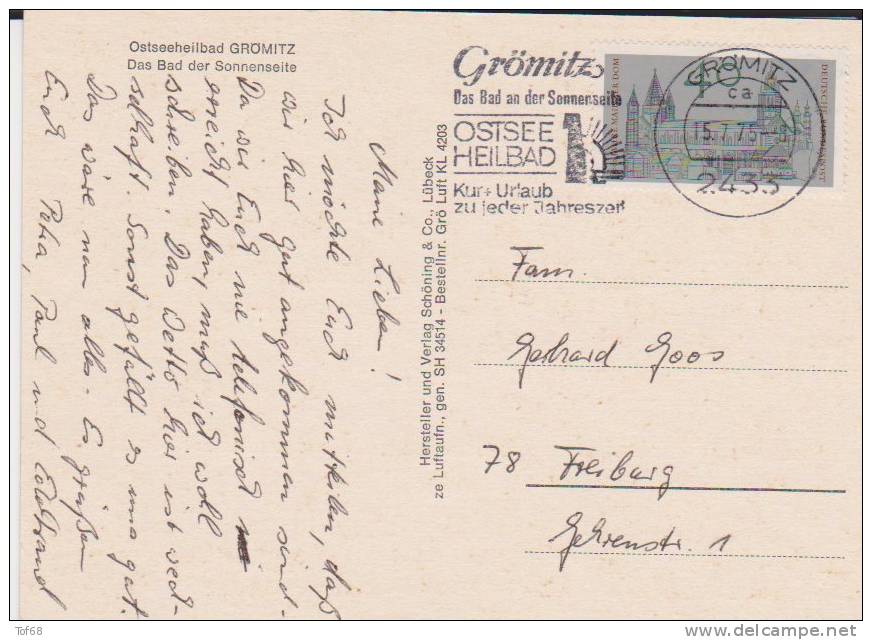 Ostseeheilbad GRÖMITZ
Das Bad der Sonnenseite
Meine Lieben!
Ich möchte Euch mitteilen, daß
wir hier gut angekommen sind.
Da wir Euch nie telefonisch
erreicht haben, muß ich wohl
schreiben. Das Wetter hier ist wech-
selhaft. Sonst gefällt es uns gut.
Das wäre nun alles. Es grüßen
Euch Petra, Paul und
Hersteller und Verlag Schöning & Co., Lübeck
ze Luftaufn., gen. SH 34514 - Bestellnr. Grö Luft KL 4203
Grömitz
Das Bad an der Sonnenseite
OSTSEE
HEILBAD
Kur+Urlaub
zu jeder Jahreszeit
GRÖMITZ
ca
15.7.75
2433
MAINZER DOM
DEUTSCHE BUNDESPOST
Fam.
Gerhard Goos
78 Freiburg
Gehrenstr. 1
Tof68
delcampe.net